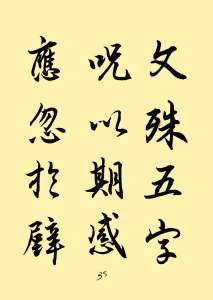 文殊五字
呪以期感
應忽於壁
35